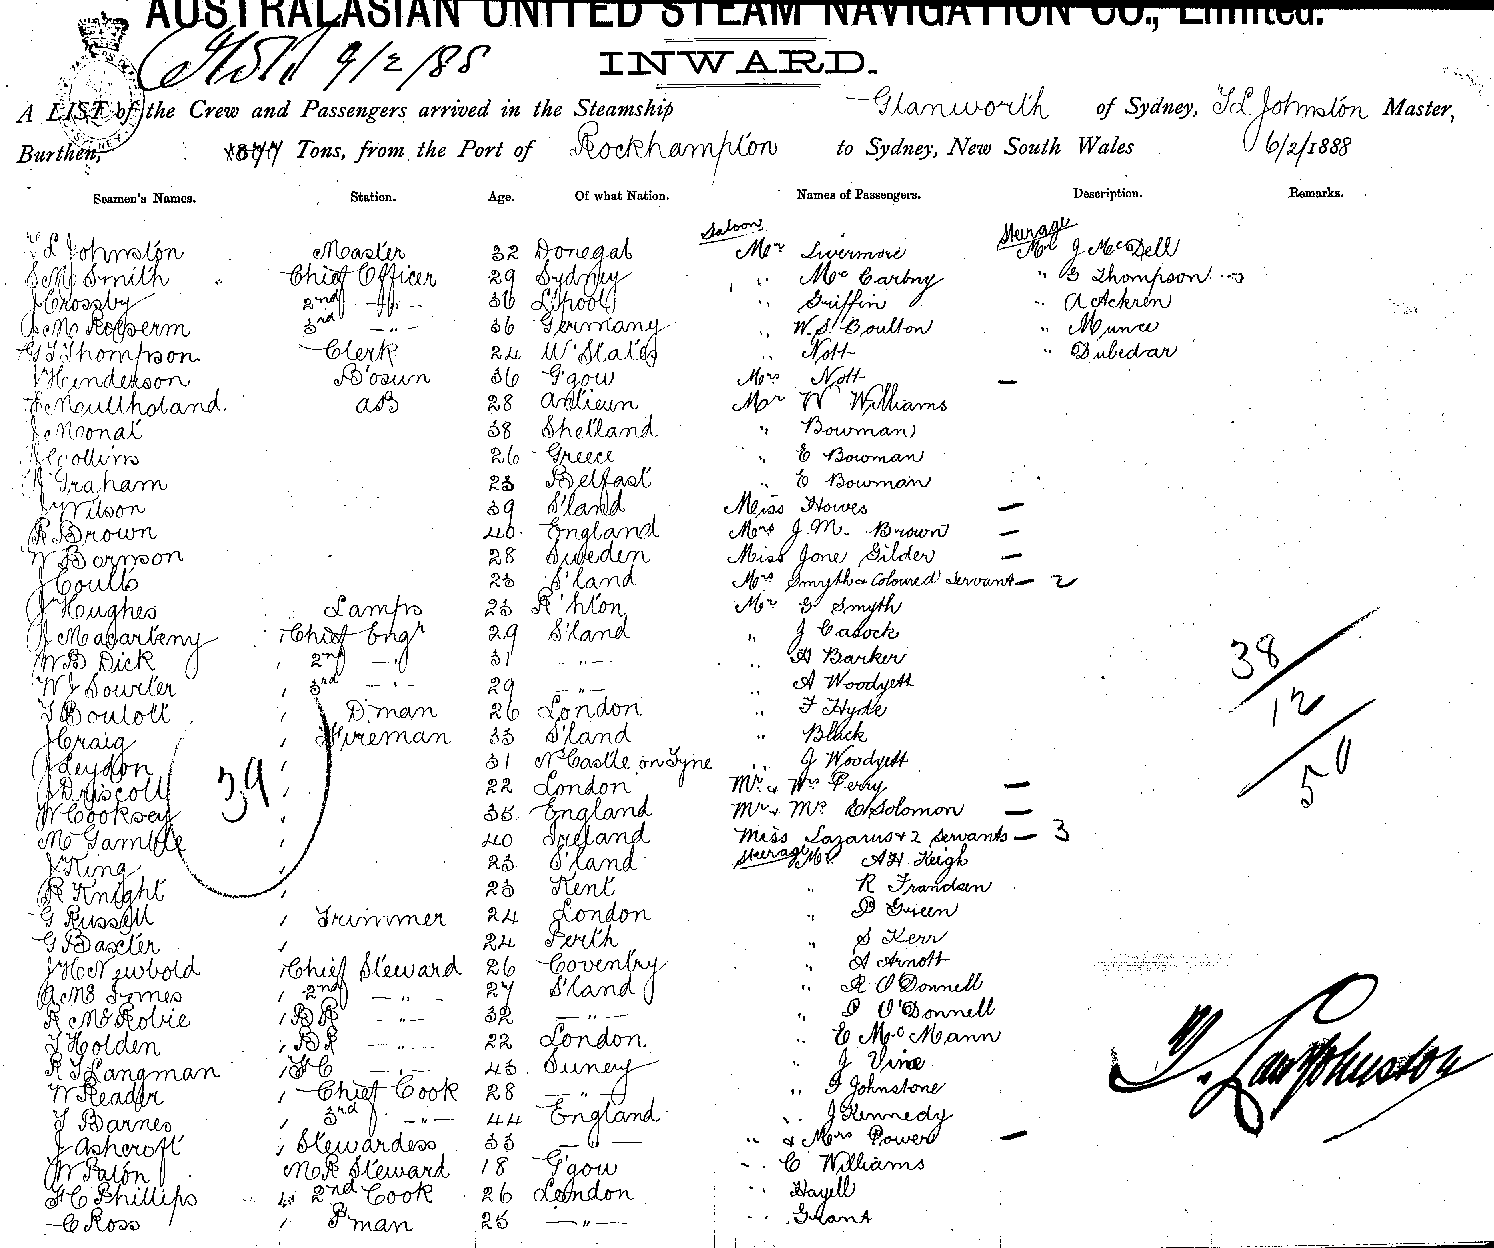 AUSTRALASIAN UNITED STEAM NAVIGATION CO., Limited.
9/2/88
INWARD.
A LIST of the Crew and Passengers arrived in the Steamship Glanworth of Sydney, T L Johnston Master,
Burthen, 1877 Tons, from the Port of Rockhampton to Sydney, New South Wales 6/2/1888
Seamen's Names. Station. Age. Of what Nation. Names of Passengers. Description. Remarks.
Saloon Steerage
T L Johnston Master 32 Donegal Mr Livermore Mr J McDell
S Mc Smith Chief Officer 29 Sydney " Mc Carthy " G Thompson
J Crossby 2nd -"- 36 L'pool " Griffin " A Ackren
3rd -"- 36 Germany " W. S. Coulton " Munce
G T Thompson Clerk 24 U States " Nott " Dubedar
J Henderson Bosun 36 G'gow Mrs Nott —
Mullholand AB 28 Mr W Williams
J Monat 38 Shetland " Bowman
J Collins 26 Greece " C Bowman
Graham 23 Belfast " E Bowman
J Wilson 39 S'land Miss Howes —
R Brown 40 England Mrs J. M. Brown —
W Barnson 28 Sweden Miss Jane Gilder —
J Coutts 23 S'land Mrs Smyth & Coloured Servant — 2
J Hughes Lamps 23 R'hton Mr G Smyth
J Macartney Chief Engr 29 S'land " J Casock
W B Dick 2nd -"- 31 -"- " A Barker
W J Sourter 3rd -"- 29 -"- " A Woodyett
T Boulott D'man 26 London " F Hyde
J Craig Fireman 33 S'land " Black
J Leydon 31 N'Castle on Tyne " J Woodyett
J Driscoll 22 London Mr & Mrs Perry —
W Cooksey 35 England Mr & Mrs E Solomon —
Mc Gamble 40 Ireland Miss Lazarus & 2 Servants — 3
J King 23 S'land Steerage Mr A H Keigh
R Knight 23 Kent " R Frandsen
G Russell Trimmer 24 London " D Green
G Baxter 24 Perth " S Kerr
J H Newbold Chief Steward 26 Coventry " A Arnott
A Mc Symes 2nd -"- 27 S'land " R O'Donnell
R McRobie BR -"- 32 -"- " P O'Donnell
T Holden BR -"- 22 London " C McMann
R T Langman FC -"- 43 Surrey " J Vine
W Reader Chief Cook 28 -"- " F Johnstone
T Barnes 3rd -"- 44 England " J Kennedy
J Ashcroft Stewardess 33 -"- " & Mrs Power —
W Paton M R Steward 18 G'gow " C Williams
H C Phillips 2nd Cook 26 London " Hayell
C Ross P'man 25 -"- " Grant
39
38
12
50
T. Law Johnston